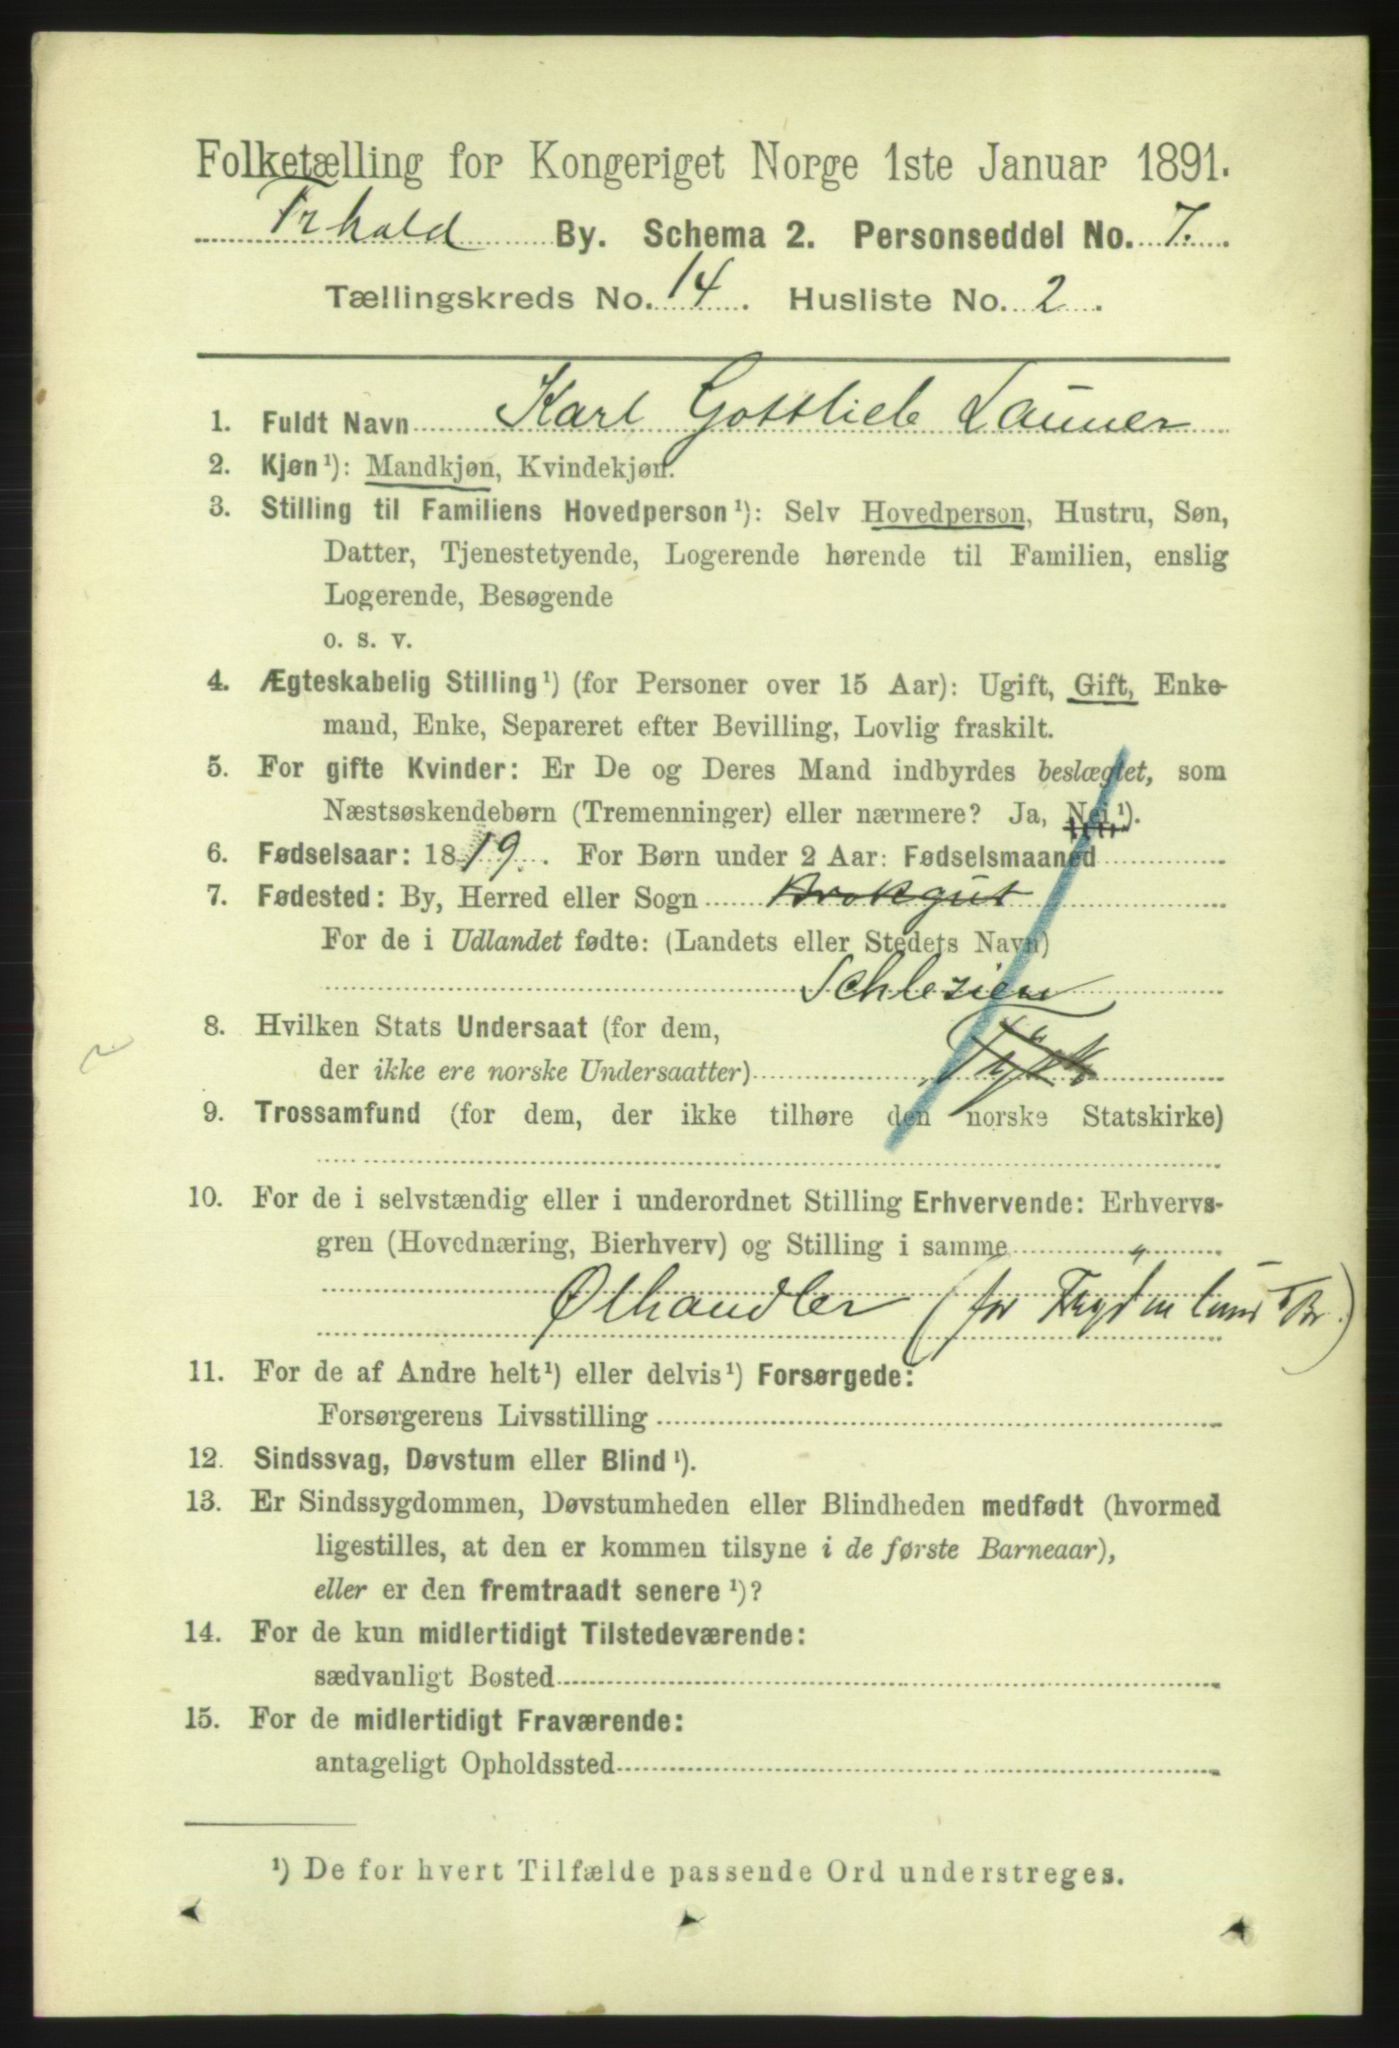 Folketælling for Kongeriget Norge 1ste Januar 1891.
Frhald By. Schema 2. Personseddel No. 7.
Tællingskreds No. 14. Husliste No. 2.
1. Fuldt Navn Karl Gottlieb Launer
2. Kjøn¹): Mandkjøn, Kvindekjøn.
3. Stilling til Familiens Hovedperson¹): Selv Hovedperson, Hustru, Søn,
Datter, Tjenestetyende, Logerende hørende til Familien, enslig
Logerende, Besøgende
o. s. v.
4. Ægteskabelig Stilling¹) (for Personer over 15 Aar): Ugift, Gift, Enke-
mand, Enke, Separeret efter Bevilling, Lovlig fraskilt.
5. For gifte Kvinder: Er De og Deres Mand indbyrdes beslægtet, som
Næstsøskendebørn (Tremenninger) eller nærmere? Ja, Nei¹).
6. Fødselsaar: 1819. For Børn under 2 Aar: Fødselsmaaned
7. Fødested: By, Herred eller Sogn Brokgut
For de i Udlandet fødte: (Landets eller Stedets Navn)
Schlezien
8. Hvilken Stats Undersaat (for dem,
der ikke ere norske Undersaatter) Tÿsk
9. Trossamfund (for dem, der ikke tilhøre den norske Statskirke)
10. For de i selvstændig eller i underordnet Stilling Erhvervende: Erhvervs-
gren (Hovednæring, Bierhverv) og Stilling i samme
Ølhandler (for Frydenlund Br.)
11. For de af Andre helt¹) eller delvis¹) Forsørgede:
Forsørgerens Livsstilling
12. Sindssvag, Døvstum eller Blind¹).
13. Er Sindssygdommen, Døvstumheden eller Blindheden medfødt (hvormed
ligestilles, at den er kommen tilsyne i de første Barneaar),
eller er den fremtraadt senere¹)?
14. For de kun midlertidigt Tilstedeværende:
sædvanligt Bosted
15. For de midlertidigt Fraværende:
antageligt Opholdssted
¹) De for hvert Tilfælde passende Ord understreges.